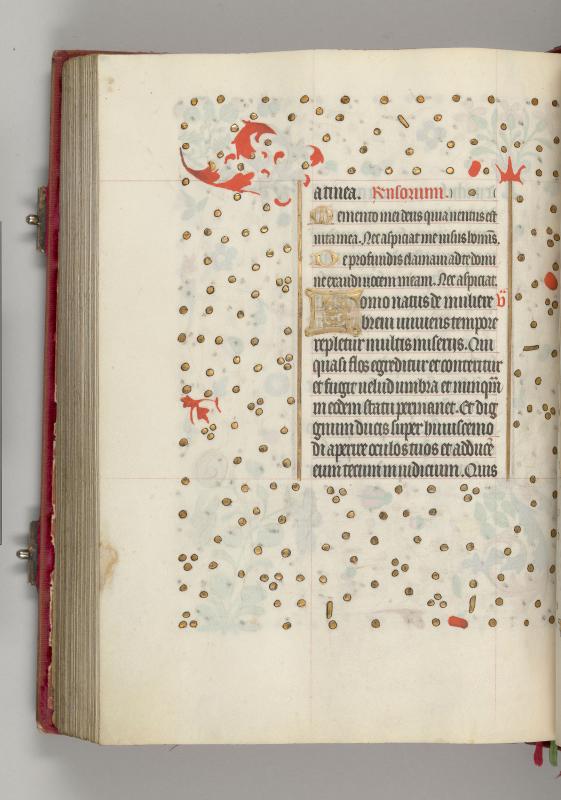 a tinea. Rnsorium.
Memento mei deus quia uentus est
uita mea. Nec aspiciat me uisus homis.
De profundis clamaui ad te domi
ne exaudi uocem meam. Nec aspiciat
Homo natus de muliere v̄
breui uiuens tempore
repletur multis miseriis. Qui
quasi flos egreditur et conteritur
et fugit uelud umbra et nunqm̄
in eodem statu permanet. Et dig
gnum ducis super huiuscemo
di aperire oculos tuos et adduce̅
eum tecum in iudicium. Quis